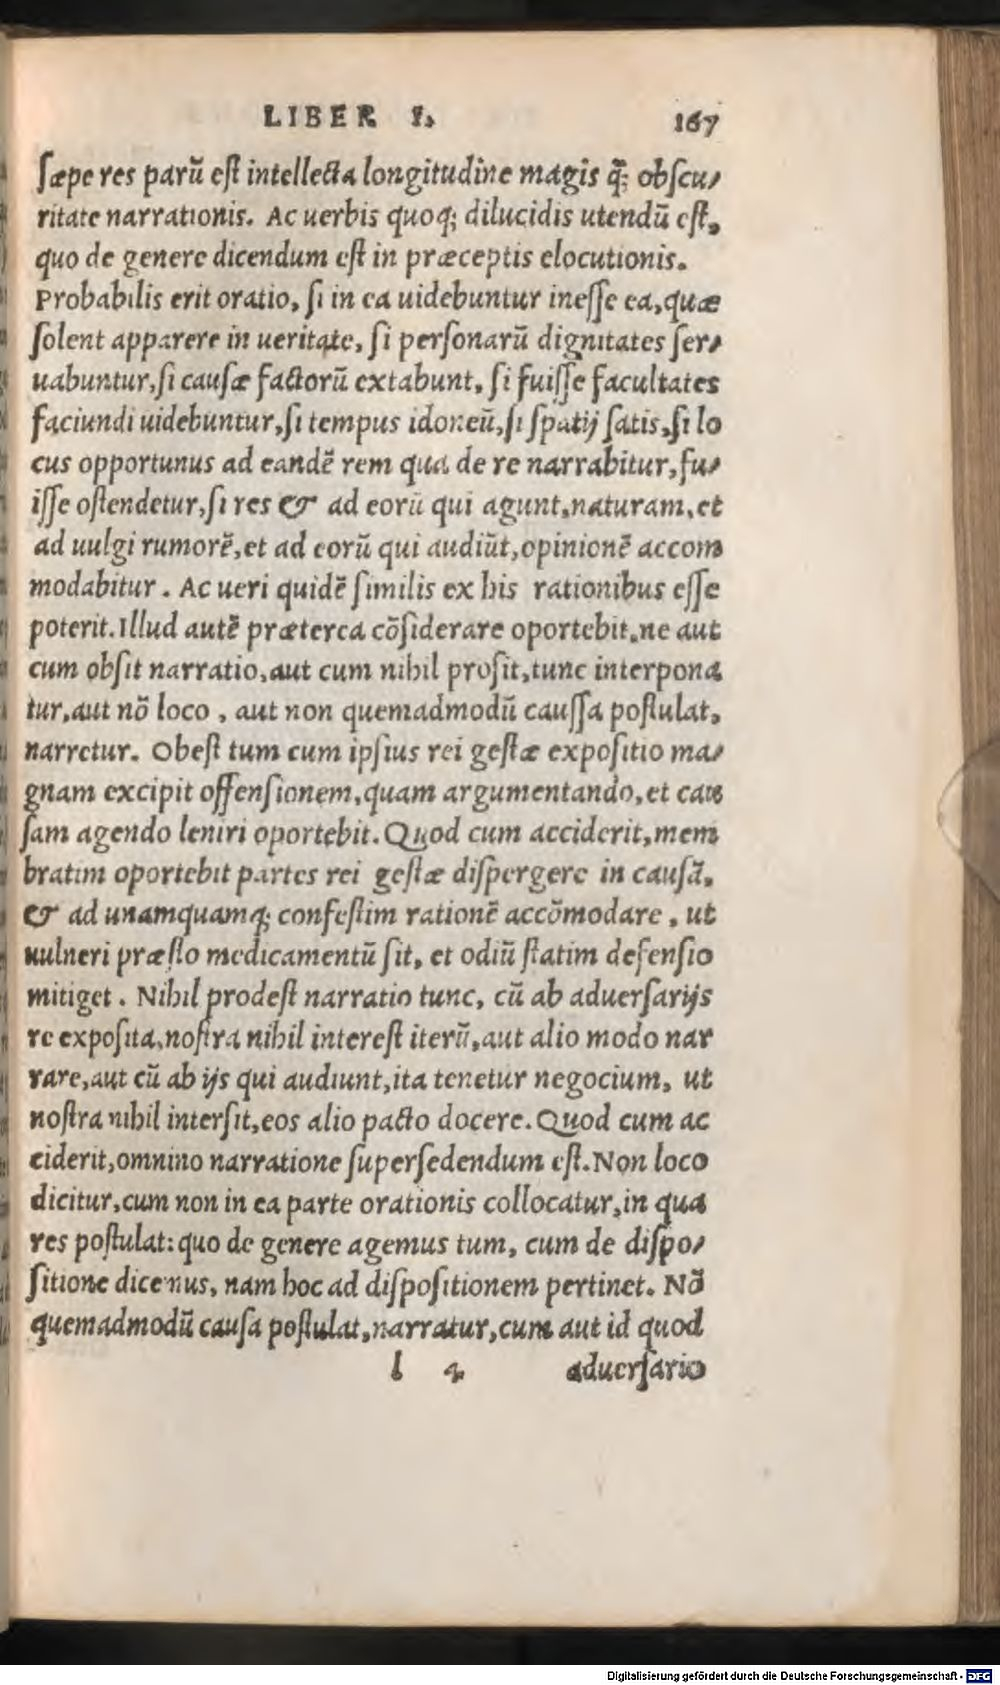 LIBER I.
167
ſæpe res parũ eſt intellecta longitudine magis q̃; obſcu/
ritate narrationis. Ac uerbis quoq; dilucidis utendũ eſt,
quo de genere dicendum eſt in præceptis elocutionis.
Probabilis erit oratio, ſi in ea uidebuntur ineſſe ea, quæ
ſolent apparere in ueritate, ſi perſonarũ dignitates ſer/
uabuntur, ſi cauſæ factorũ extabunt, ſi fuiſſe facultates
faciundi uidebuntur, ſi tempus idoneũ, ſi ſpatij ſatis, ſi lo
cus opportunus ad eandẽ rem qua de re narrabitur, fu/
iſſe oſtendetur, ſi res & ad eorũ qui agunt, naturam, et
ad uulgi rumorẽ, et ad eorũ qui audiũt, opinionẽ accom
modabitur. Ac ueri quidẽ ſimilis ex his rationibus eſſe
poterit. Illud autẽ præterea cõſiderare oportebit, ne aut
cum obſit narratio, aut cum nihil proſit, tunc interpona
tur, aut nõ loco, aut non quemadmodũ cauſſa poſtulat,
narretur. Obeſt tum cum ipſius rei geſtæ expoſitio ma/
gnam excipit offenſionem, quam argumentando, et cau
ſam agendo leniri oportebit. Quod cum acciderit, mem
bratim oportebit partes rei geſtæ diſpergere in cauſã,
& ad unamquamq; confeſtim rationẽ accõmodare, ut
uulneri præſto medicamentũ ſit, et odiũ ſtatim defenſio
mitiget. Nihil prodeſt narratio tunc, cũ ab aduerſarijs
re expoſita, noſtra nihil intereſt iterũ, aut alio modo nar
rare, aut cũ ab ijs qui audiunt, ita tenetur negocium, ut
noſtra nihil interſit, eos alio pacto docere. Quod cum ac
ciderit, omnino narratione ſuperſedendum eſt. Non loco
dicitur, cum non in ea parte orationis collocatur, in qua
res poſtulat: quo de genere agemus tum, cum de diſpo/
ſitione dicemus, nam hoc ad diſpoſitionem pertinet. Nõ
quemadmodũ cauſa poſtulat, narratur, cum aut id quod
l 4 aduerſario
Digitalisierung gefördert durch die Deutsche Forschungsgemeinschaft - DFG